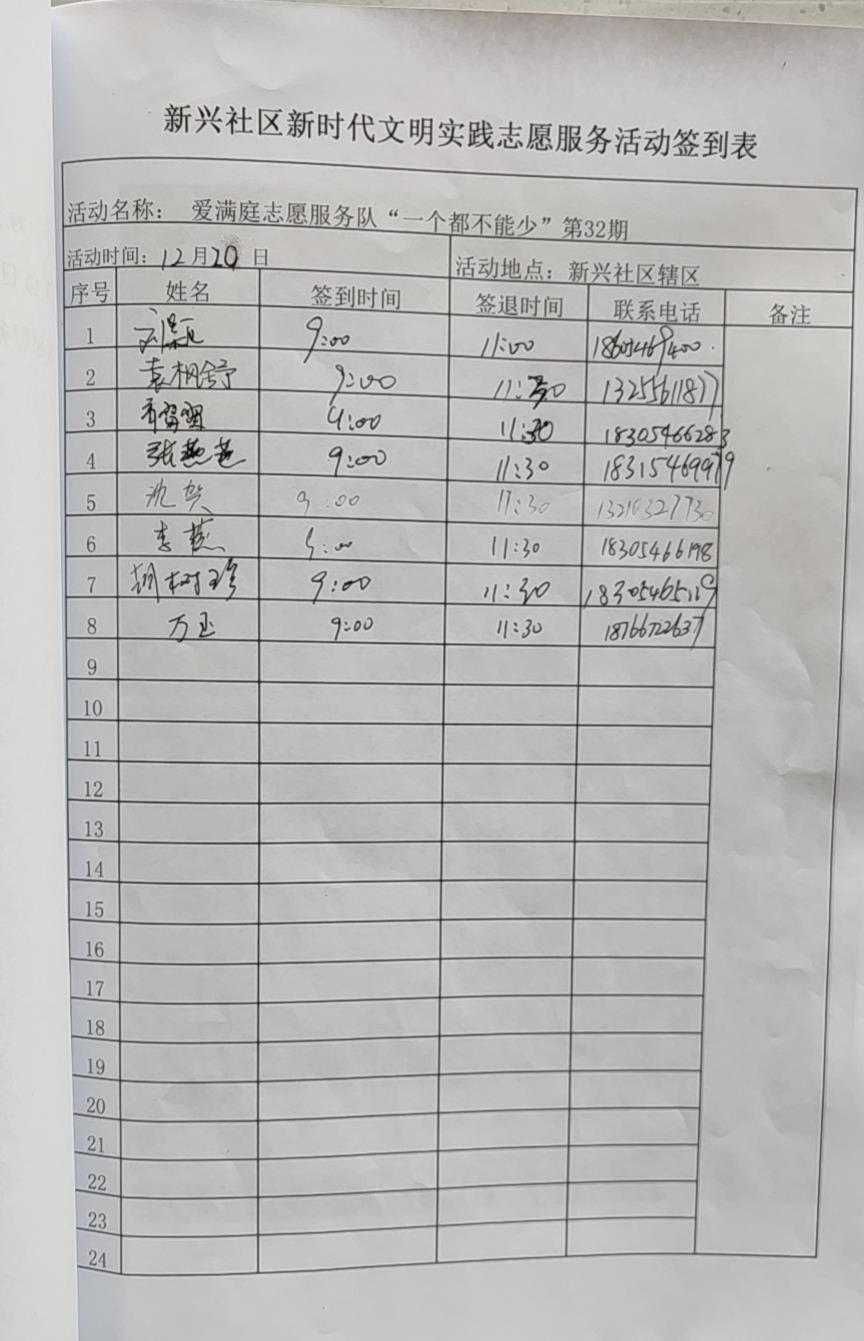 新兴社区新时代文明实践志愿服务活动签到表
活动名称： 爱满庭志愿服务队“一个都不能少”第32期
活动时间：12月20日 活动地点：新兴社区辖区
序号 姓名 签到时间 签退时间 联系电话 备注
1 9:00 11:00
2 袁桐舒 9:00 11:30 13255611877
3 9:00 11:30 18305466283
4 张燕燕 9:00 11:30 18315469979
5 沈贺 9:00 11:30 13210327730
6 李蕊 9:00 11:30 18305466198
7 胡树珍 9:00 11:30
8 万玉 9:00 11:30 18766722637
9
10
11
12
13
14
15
16
17
18
19
20
21
22
23
24